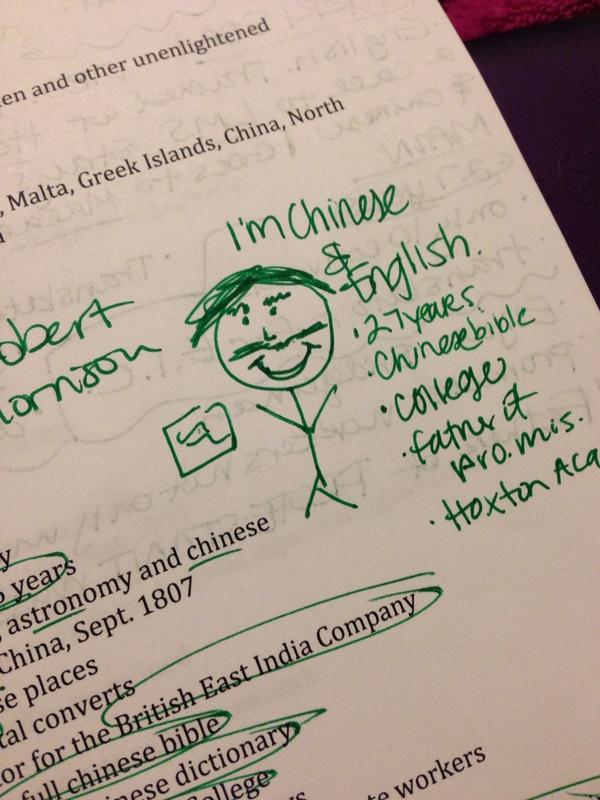 en and other unenlightened
, Malta, Greek Islands, China, North
I'm Chinese
&
English.
obert
ornison
· 27 years
· Chinese bible
· College
· father of
pro. mis.
· Hoxton Aca
y
years
, astronomy and chinese
China, Sept. 1807
se places
tal converts
or for the British East India Company
full chinese bible
inese dictionary
College
te workers